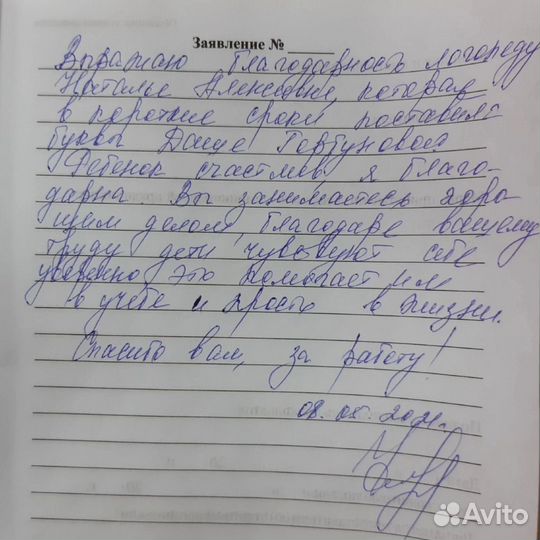 Заявление № ____
Выражаю благодарность логопеду
Наталье Алексеевне, которая
в короткие сроки поставила
буквы Даше Горбуновой
Ребенок счастлив, я благо-
дарна. Вы занимаетесь хоро
шим делом, благодаре вашему
труду дети чувствуют себе
уверенно это помогает им
в учебе и просто в жизни.
Спасибо вам, за работу!
08.09.2021.
Avito